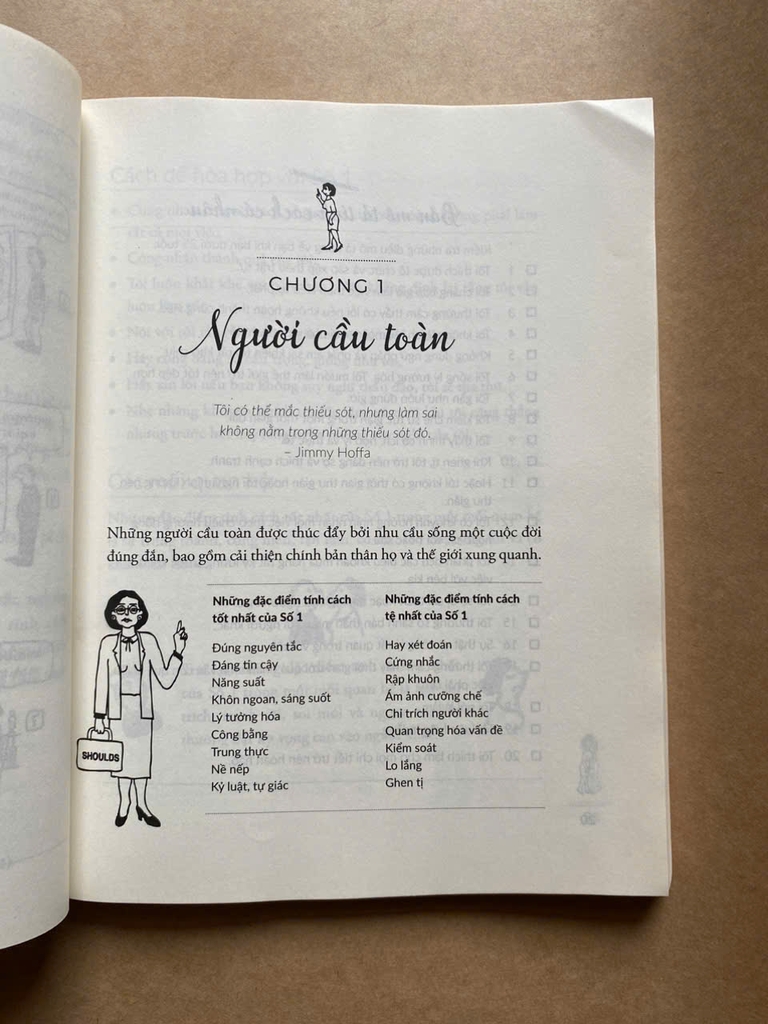 CHƯƠNG 1
Người cầu toàn
Tôi có thể mắc thiếu sót, nhưng làm sai
không nằm trong những thiếu sót đó.
– Jimmy Hoffa
Những người cầu toàn được thúc đẩy bởi nhu cầu sống một cuộc đời
đúng đắn, bao gồm cải thiện chính bản thân họ và thế giới xung quanh.
Những đặc điểm tính cách
tốt nhất của Số 1
Đúng nguyên tắc
Đáng tin cậy
Năng suất
Khôn ngoan, sáng suốt
Lý tưởng hóa
Công bằng
Trung thực
Nề nếp
Kỷ luật, tự giác
Những đặc điểm tính cách
tệ nhất của Số 1
Hay xét đoán
Cứng nhắc
Rập khuôn
Ám ảnh cưỡng chế
Chỉ trích người khác
Quan trọng hóa vấn đề
Kiểm soát
Lo lắng
Ghen tị
SHOULDS